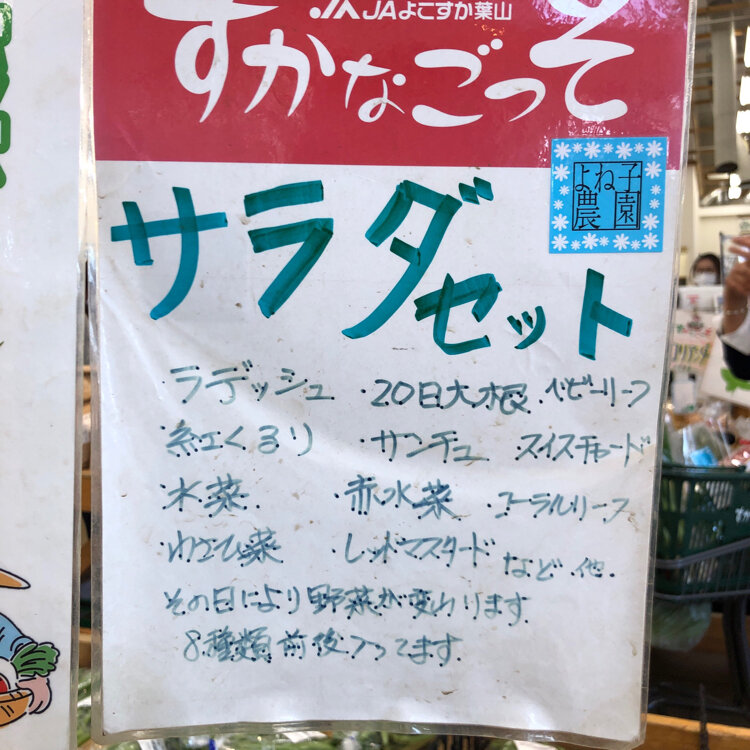 JAよこすか葉山
すかなごっそ
よね子
農園
サラダセット
・ラディッシュ ・20日大根 ・ベビーリーフ
・紅くるり ・サンチュ スイスチャード
・水菜 ・赤水菜 ・コーラルリーフ
・わさび菜 ・レッドマスタード など.他.
その日により野菜が変わります
8種類前後入ってます